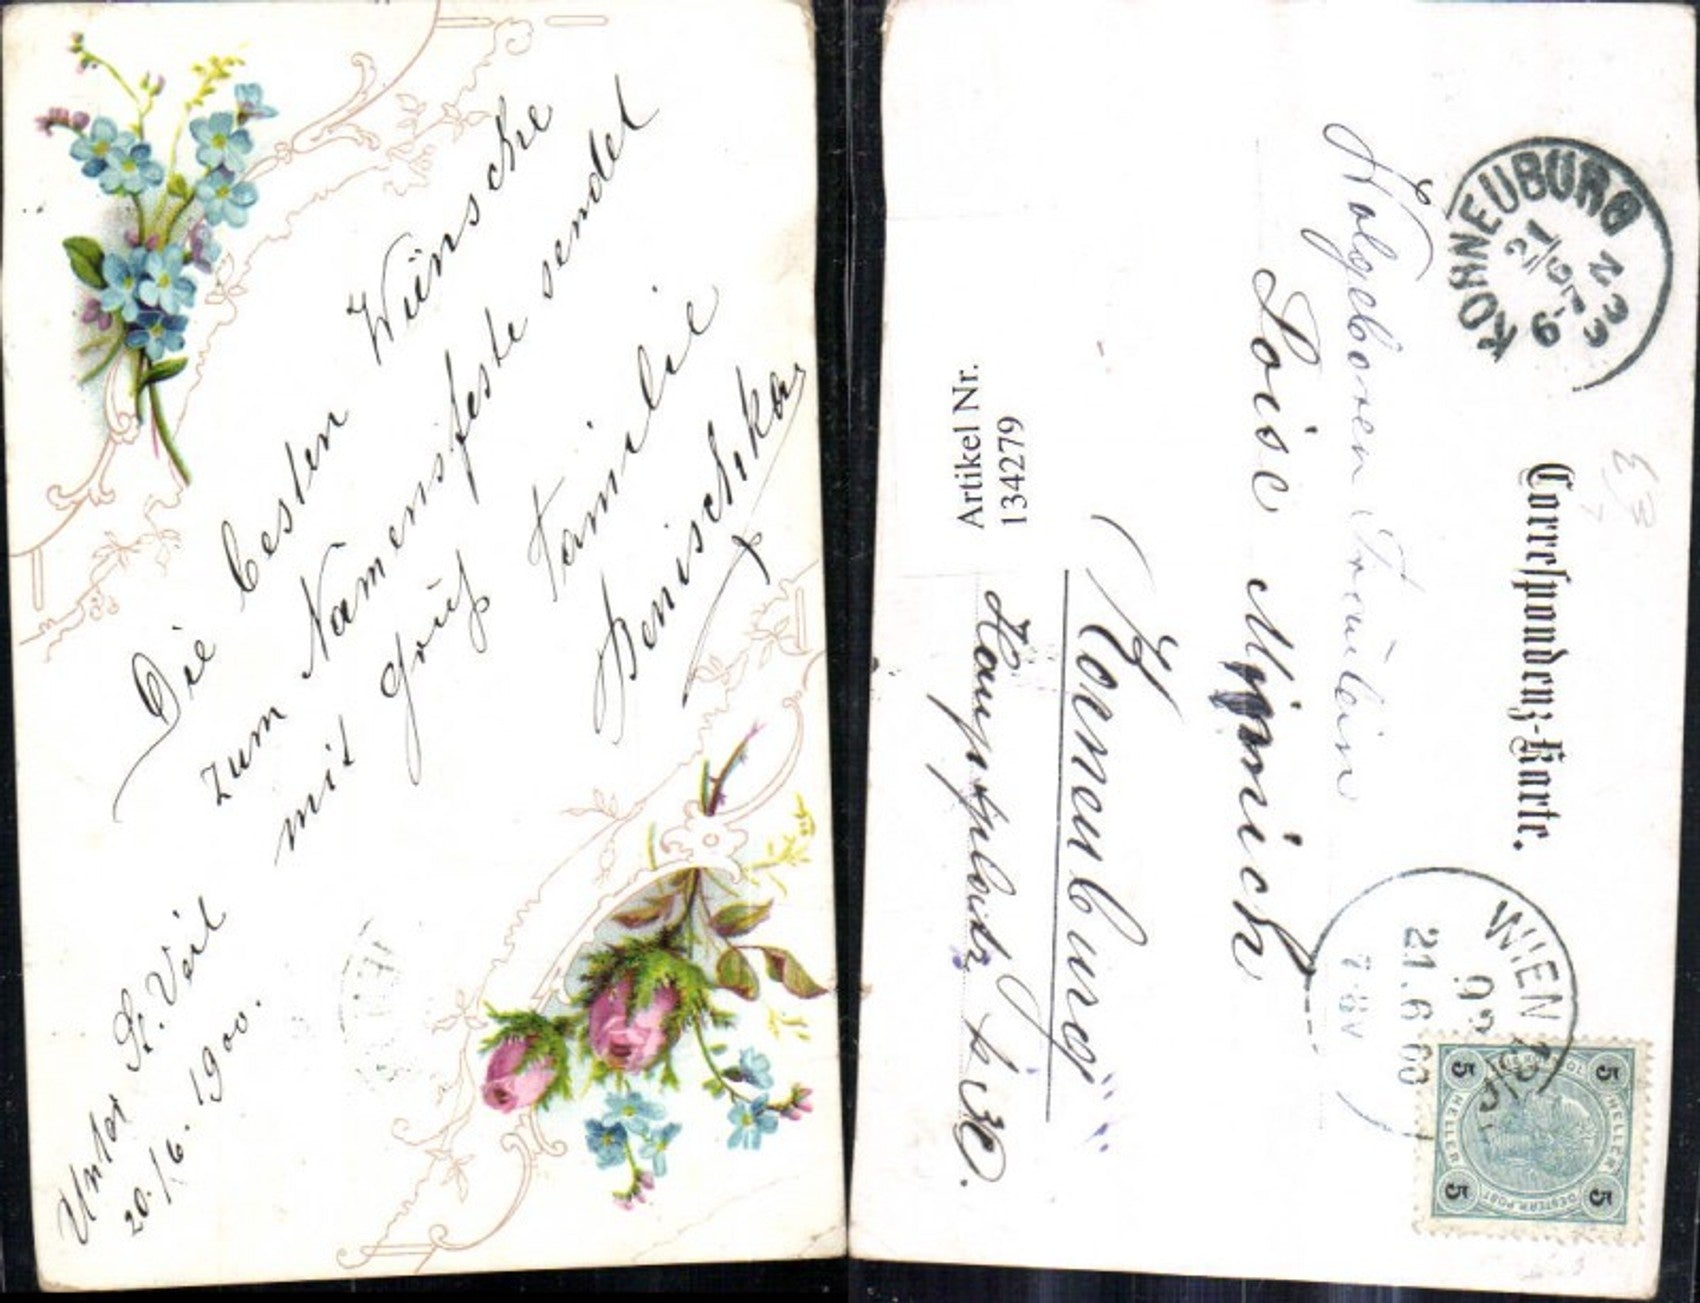 Die besten Wünsche
zum Namensfeste sendet
mit Gruß Familie
Benischka
Unter St. Veit
20./6. 1900.
KORNEUBURG
21/6
6-7 N
Correspondenz-Karte.
Wolgeboren Fräulein
Loise Minich
Korneuburg
Hauptplatz
Artikel Nr.
1342279
WIEN
21.6.00
5 5
HELLER HELLER
5 5